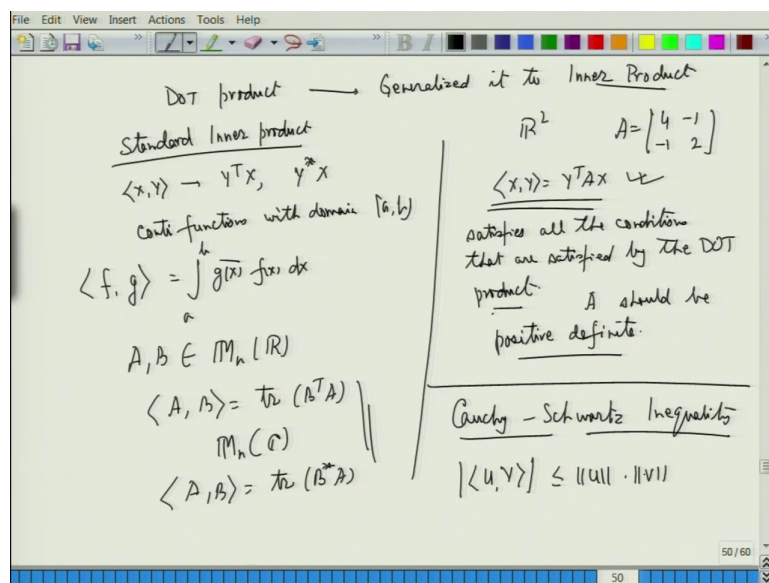 File Edit View Insert Actions Tools Help
DOT product ⟶ Generalized it to Inner Product
Standard Inner product
⟨x,y⟩ → yᵀx, y*x
conti functions with domain [a,b]
⟨f, g⟩ = ∫ₐᵇ \overline{g(x)} f(x) dx
A, B ∈ 𝕄ₙ(ℝ)
⟨A, B⟩ = tr (BᵀA)
𝕄ₙ(ℂ)
⟨A, B⟩ = tr (B*A)
ℝ² A = [4 -1
-1 2]
⟨x,y⟩ = yᵀAx
satisfies all the conditions
that are satisfied by the DOT
product. A should be
positive definite.
Cauchy - Schwartz Inequality
|⟨u,v⟩| ≤ ||u|| . ||v||
50 / 60
50